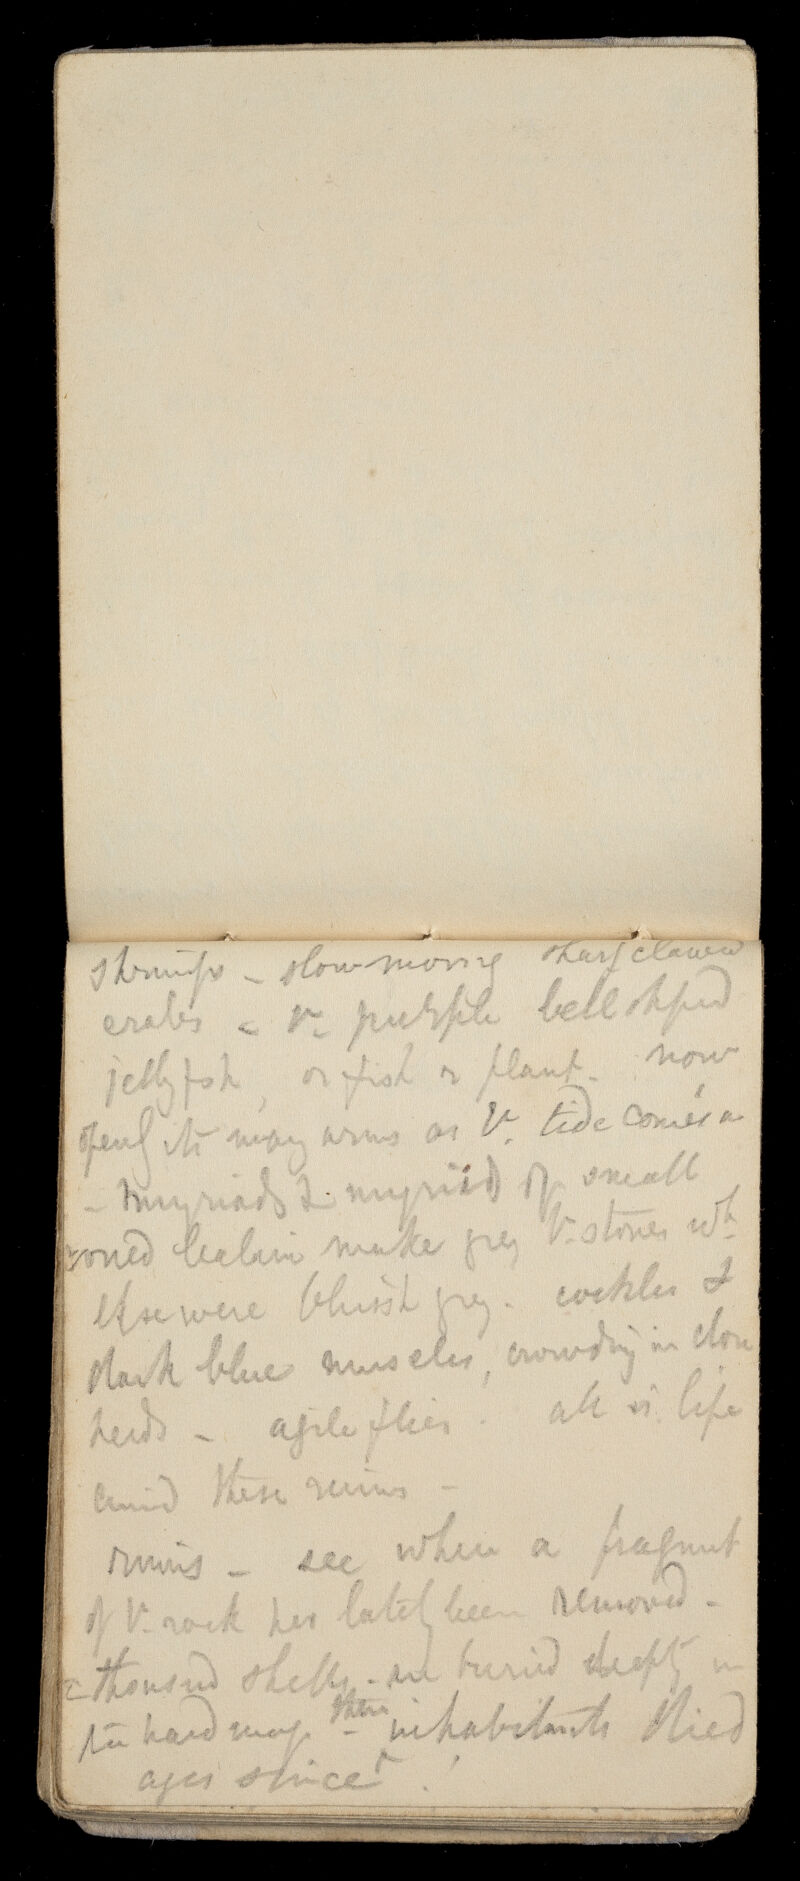 shrimps - slow moving sharp clawed
crabs - V. purple bell shped
jellyfish, or fish or plant - now
openg its many arms as V. tide comes in
- myriads & myriads of small
make grey V. stones wh
elsewere bluish grey. cockles &
dark blue muscles, crowding in close
beds - agile flies. all is life
amid these ruins -
ruins - see when a fragmnt
of V. rock has lately been removed -
thousand shells - are buried deeply in
hard their inhabitants died
ages since !